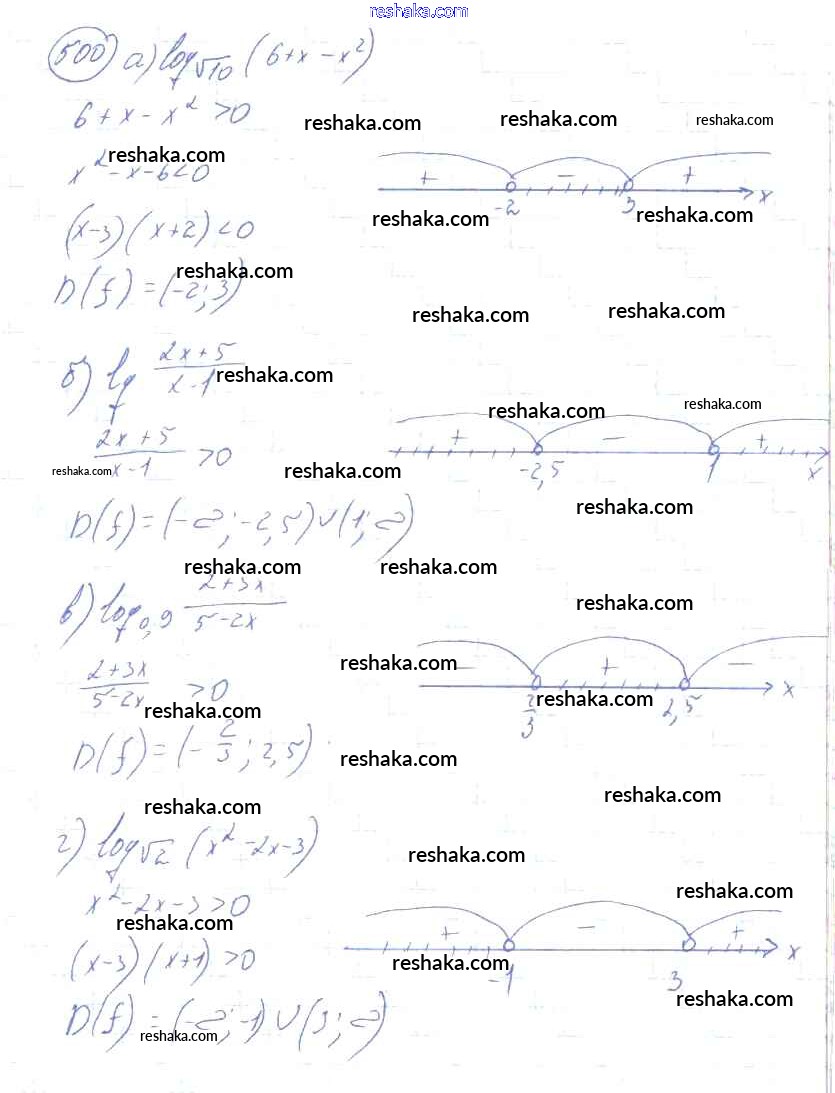 reshaka.com
500 а) log√10 (6+x-x²)
6+x-x²>0
reshaka.com reshaka.com reshaka.com
reshaka.com
x²-x-6<0
+ - + x
-2 3
reshaka.com reshaka.com
(x-3)(x+2)<0
reshaka.com
D(f)=(-2;3)
reshaka.com reshaka.com
б) lg (2x+5)/(x-1)
reshaka.com
reshaka.com reshaka.com
(2x+5)/(x-1) >0
+ - +
-2,5 1 x
reshaka.com reshaka.com
reshaka.com
D(f)=(-∞;-2,5)∪(1;∞)
reshaka.com reshaka.com
в) log0,9 (2+3x)/(5-2x)
reshaka.com
reshaka.com
(2+3x)/(5-2x) >0
+ - x
2/3 2,5
reshaka.com reshaka.com
D(f)=(-2/3;2,5)
reshaka.com
reshaka.com reshaka.com
г) log√2 (x²-2x-3)
reshaka.com
x²-2x-3>0
reshaka.com reshaka.com
+ - + x
-1 3
(x-3)(x+1)>0
reshaka.com
D(f)=(-∞;-1)∪(3;∞)
reshaka.com reshaka.com